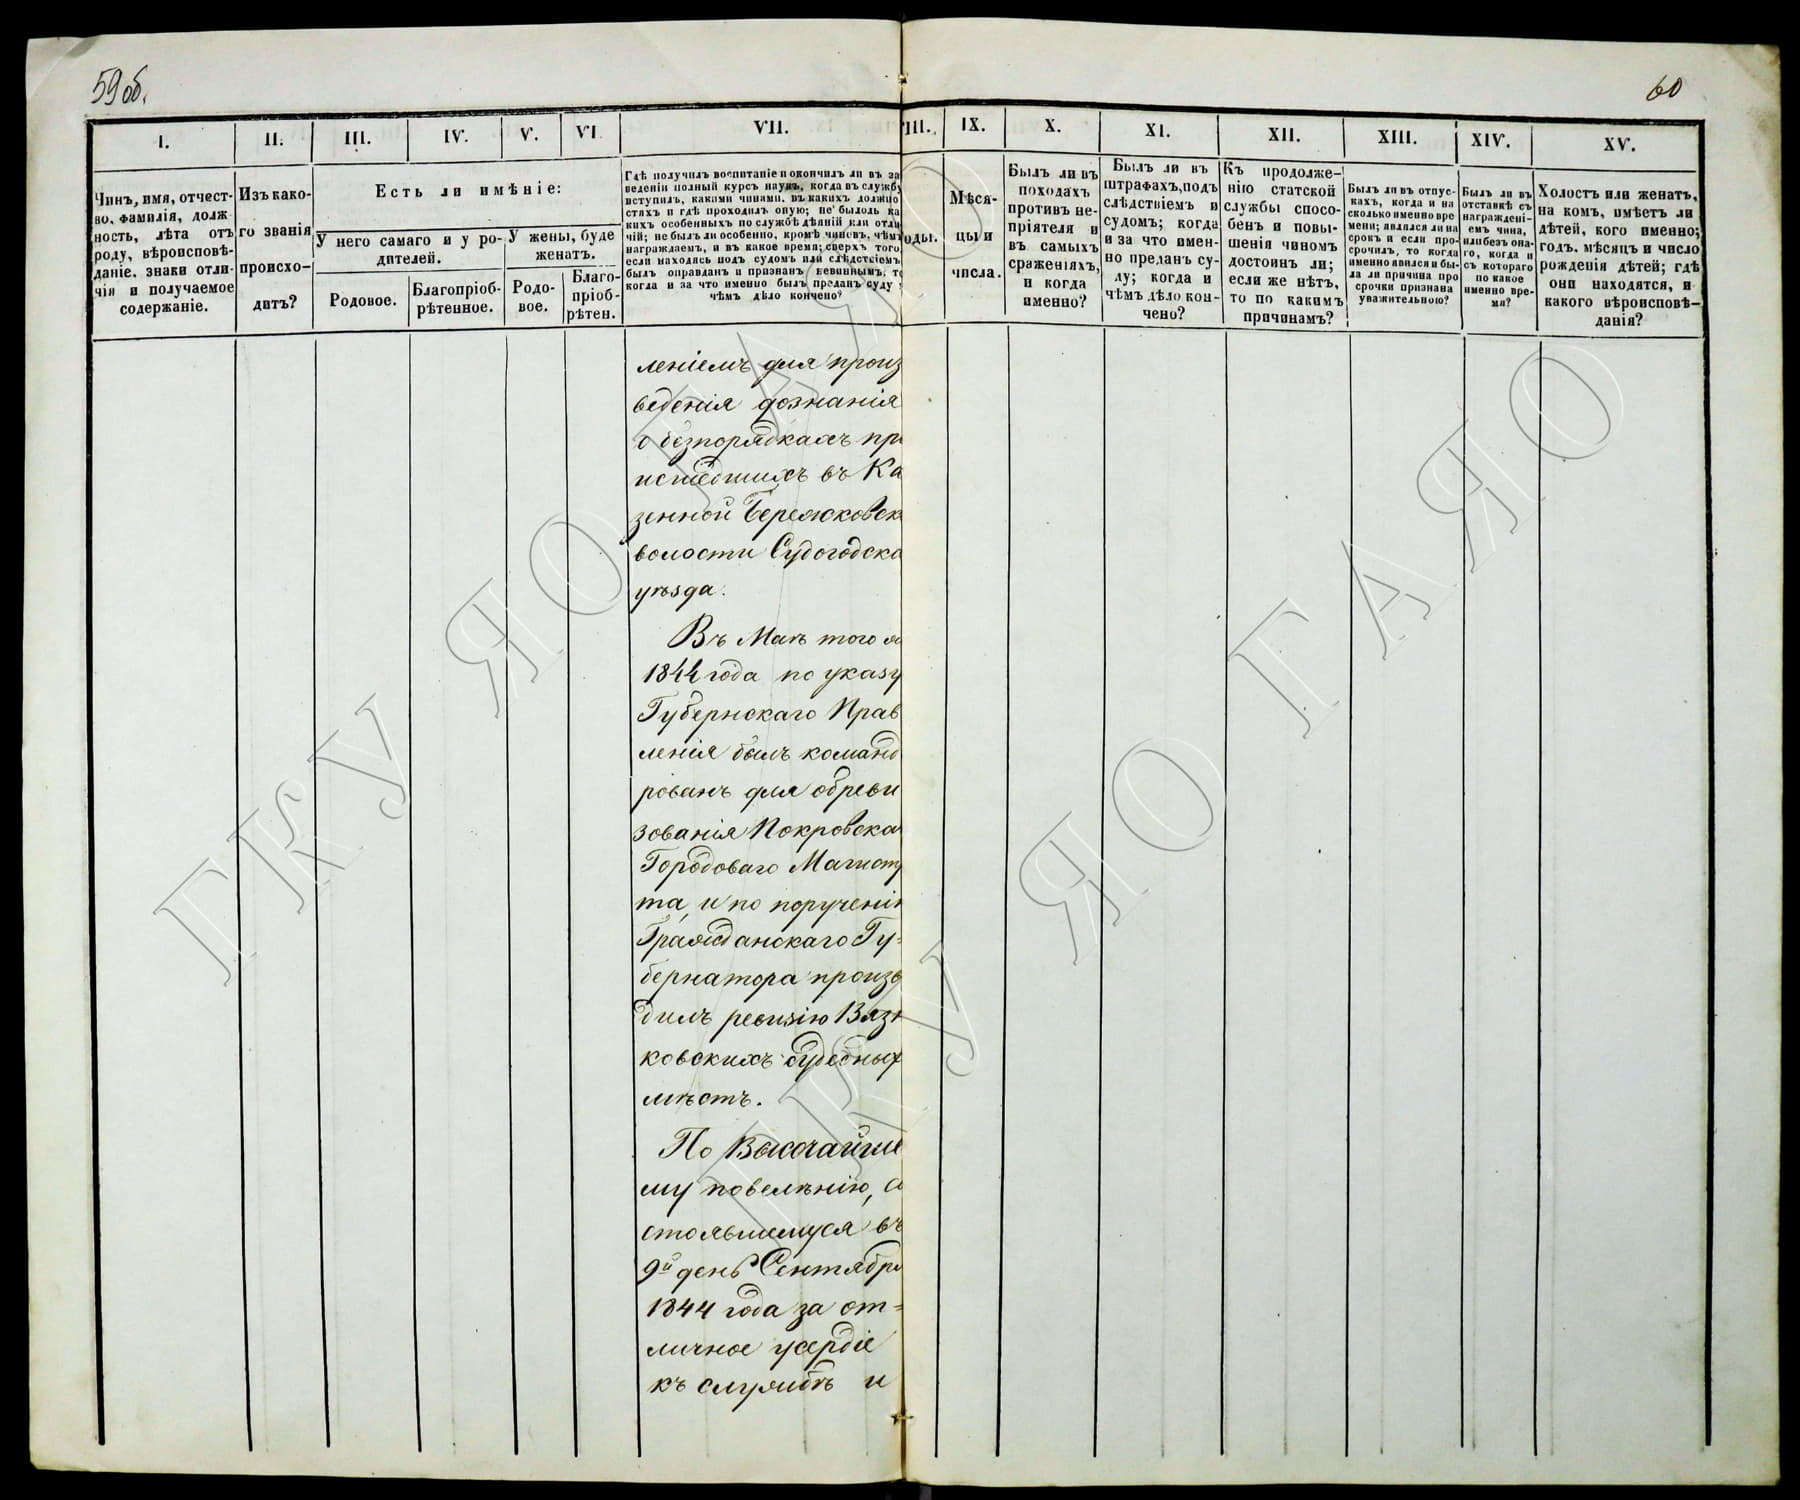 59 об.
60
I.
II.
III.
IV.
V.
VI
VII.
III.
IX.
X.
XI.
XII.
XIII.
XIV.
XV.
Чинъ, имя, отчест-
во, фамилія, долж
ность, лѣта отъ
роду, вѣроисповѣ-
даніе, знаки отли-
чія и получаемое
содержаніе.
Изъ како-
го званія
происхо-
дитъ?
Есть ли имѣніе:
У него самаго и у ро-
дителей.
У жены, буде
женатъ.
Родовое.
Благопріоб-
рѣтенное.
Родо-
вое.
Благо-
пріоб-
рѣтен.
Гдѣ получилъ воспитаніе и окончилъ ли въ за
веденіи полный курсъ наукъ, когда въ службу
вступилъ, какими чинами, въ какихъ должно
стяхъ и гдѣ проходилъ оную; не былоль ка
кихъ особенныхъ по службѣ дѣяній или отли
чій; не былъ ли особенно, кромѣ чиновъ, чѣмъ
награждаемъ, и въ какое время; сверхъ того
если находясь подъ судомъ или слѣдствіемъ
былъ оправданъ и признанъ невиннымъ, то
когда и за что именно былъ преданъ суду
чѣмъ дѣло кончено?
оды.
Мѣся-
цы и
числа.
Былъ ли въ
походахъ
противъ не-
пріятеля и
въ самыхъ
сраженіяхъ,
и когда
именно?
Былъ ли въ
штрафахъ, подъ
слѣдствіемъ и
судомъ; когда
и за что имен-
но преданъ су-
ду; когда и
чѣмъ дѣло кон-
чено?
Къ продолже-
нію статской
службы спосо-
бенъ и повы-
шенія чиномъ
достоинъ ли;
если же нѣтъ,
то по какимъ
причинамъ?
Былъ ли въ отпус-
кахъ, когда и на
сколько именно вре
мени; являлся ли на
срокъ и если про-
срочилъ, то когда
именно явился и бы-
ла ли причина про
срочки признана
уважительною?
Былъ ли въ
отставкѣ съ
награждені-
емъ чина,
или безъ она-
го, когда и
съ котораго
по какое
именно вре-
мя?
Холостъ или женатъ,
на комъ, имѣетъ ли
дѣтей, кого именно;
годъ, мѣсяцъ и число
рожденія дѣтей; гдѣ
они находятся, и
какого вѣроисповѣ-
данія?
леніемъ для произ
веденія дознанія
о безпорядкахъ про
исшедшихъ въ Ка
зенной Бережковск
волости Судогодска
уѣзда.
Въ Маѣ того ж
1844 года по указу
Губернскаго Прав
ленія былъ команд
рованъ для обреви
зованія Покровска
Городоваго Магистр
та, и по порученію
Гражданскаго Гу-
бернатора произв
дилъ ревизію Вязн
ковскихъ судебных
мѣстъ.
По Высочайше
му повелѣнію, со
стоявшемуся въ
9й день Сентября
1844 года за от-
личное усердіе
къ службѣ и
ГКУ ЯО ГАЯО
ГКУ ЯО ГАЯО